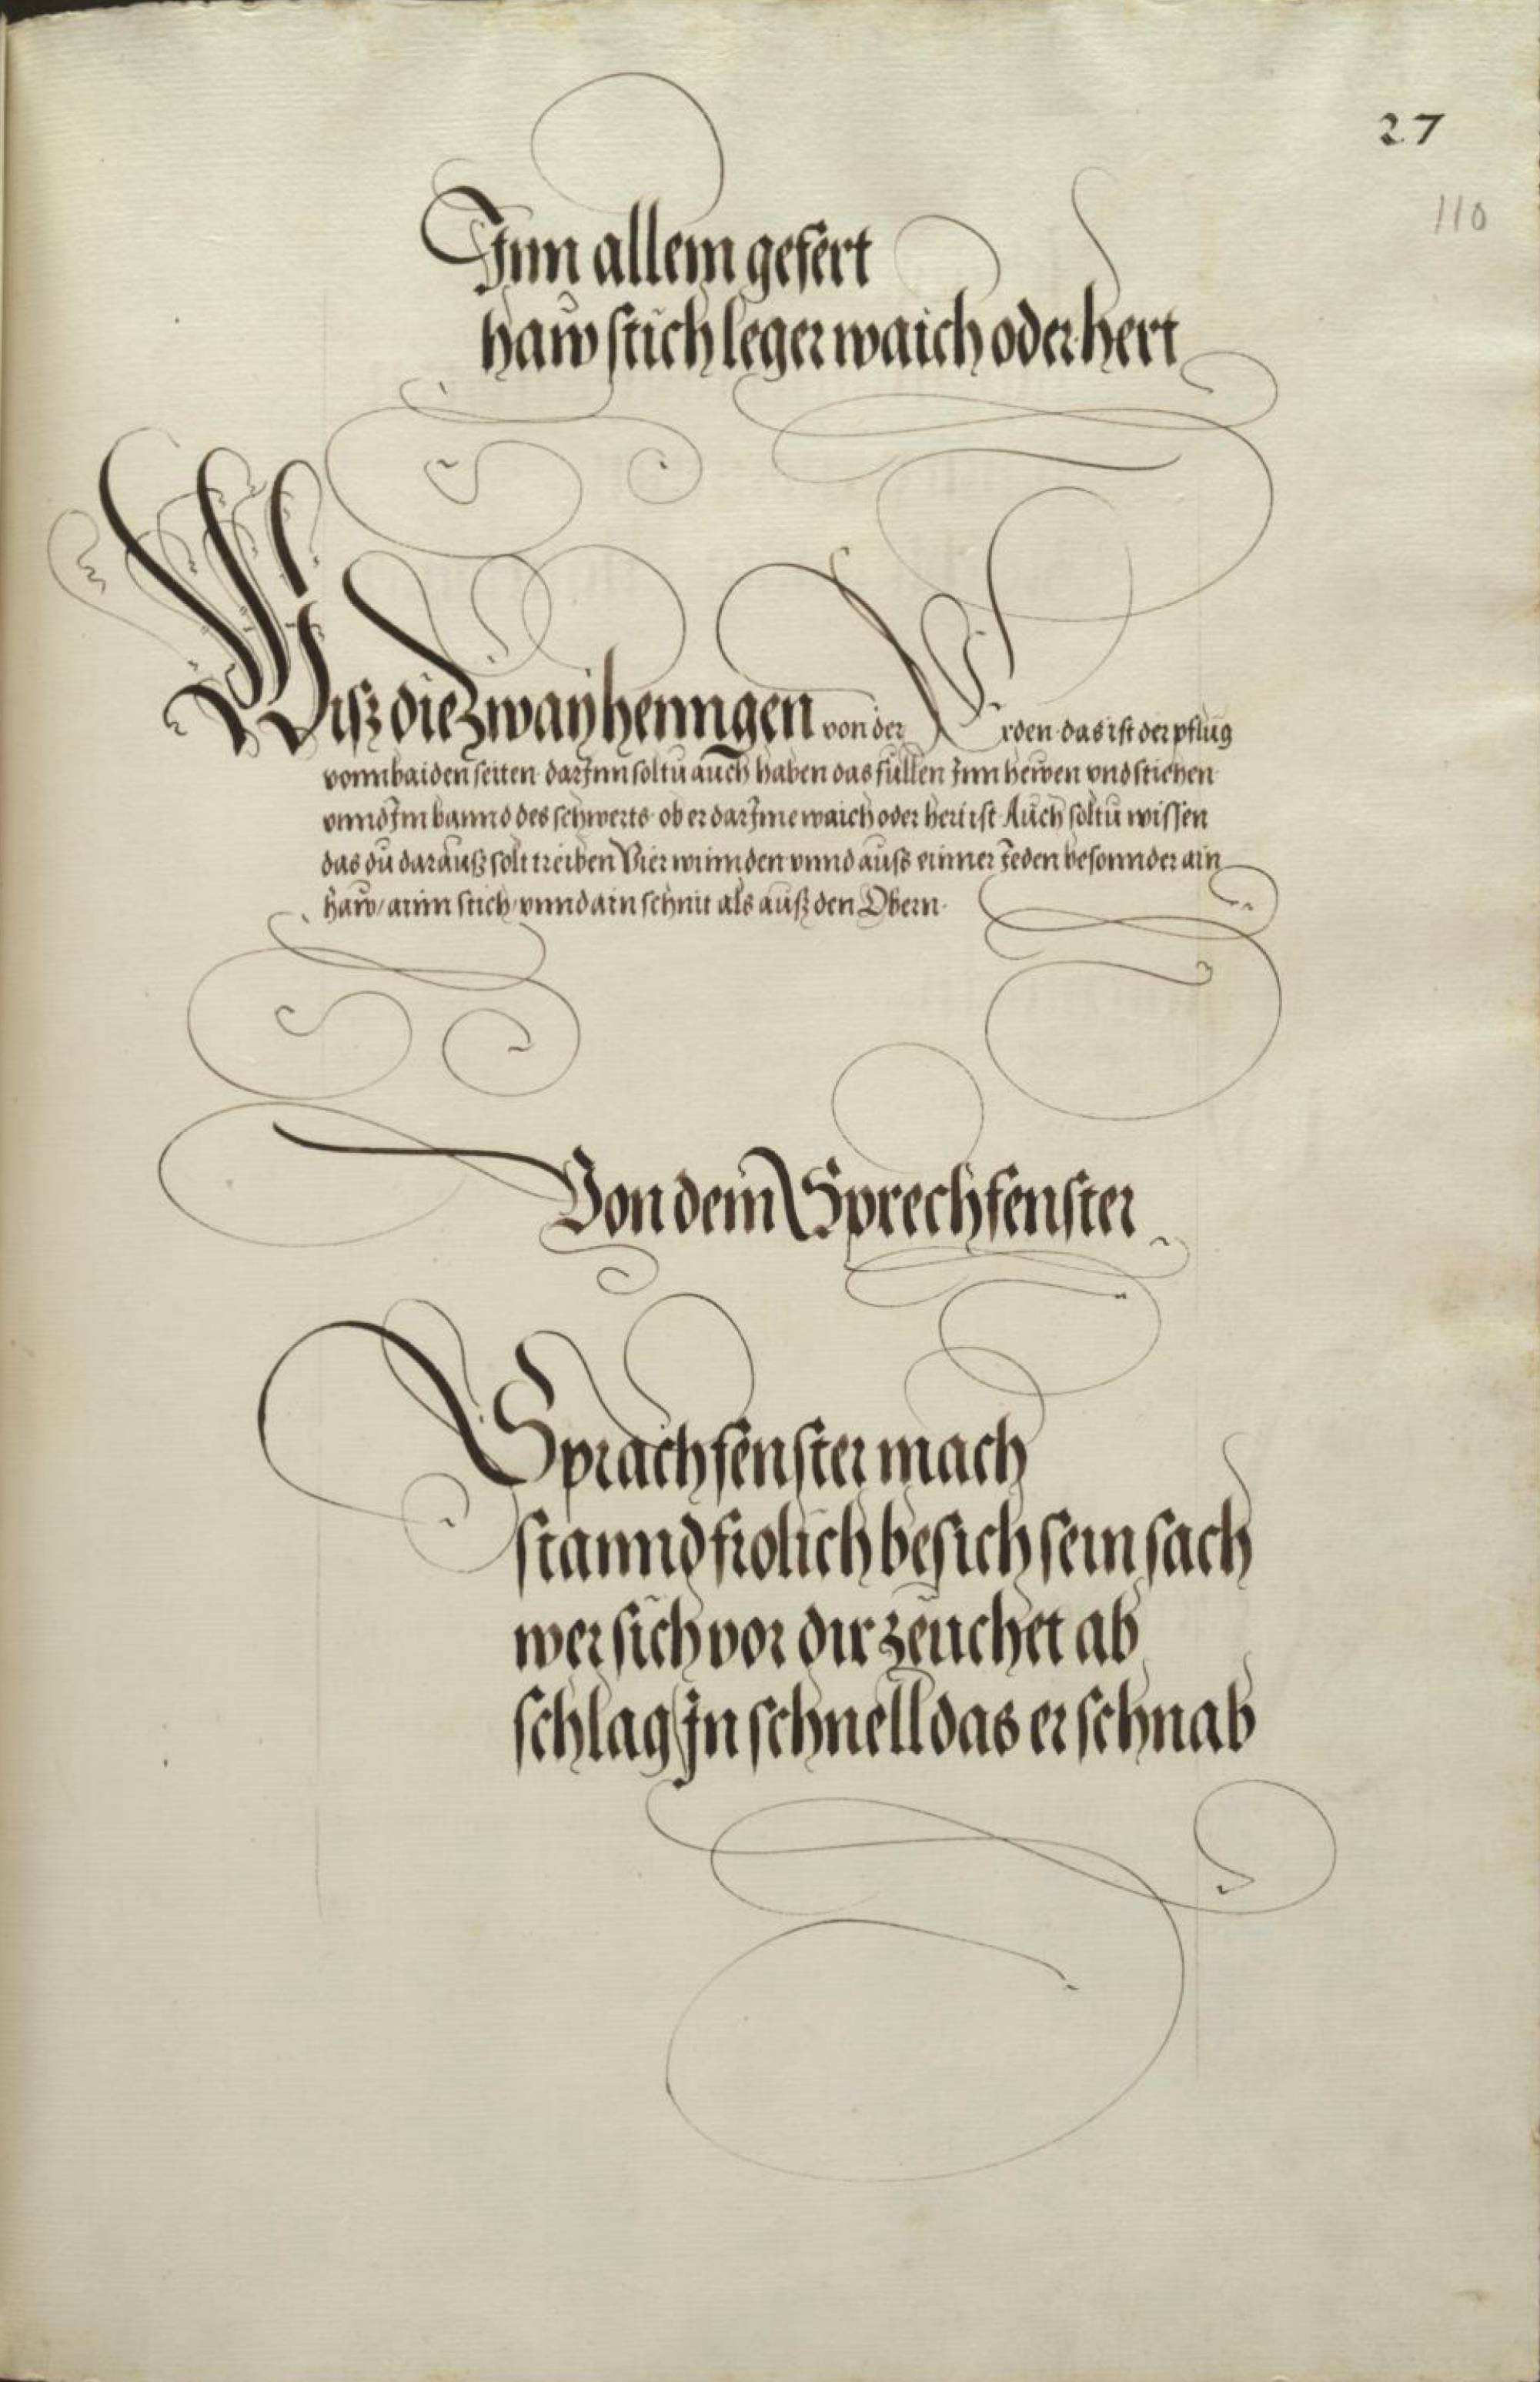 27
110
Jnn allem gefert
haw stich leger waich oder hert
Wisz die zway henngen von der Erden das ist der pflug
vonn baiden seiten darJnn soltu auch haben das füllen Jnn hewen vnd stichen
vnnd Jm bannd des schwerts ob er darJnne waich oder hert ist Auch soltu wissen
das du darausz solt treiben Vier winnden vnnd auss einner Jeden besonnder ain
haw / ainn stich / vnnd ain schnit als ausz den Obern
Von dem Sprechfenster
Sprachfenster mach
stannd frolich besich sein sach
wer sich vor dir zeuchet ab
schlag Jn schnell das er schnab